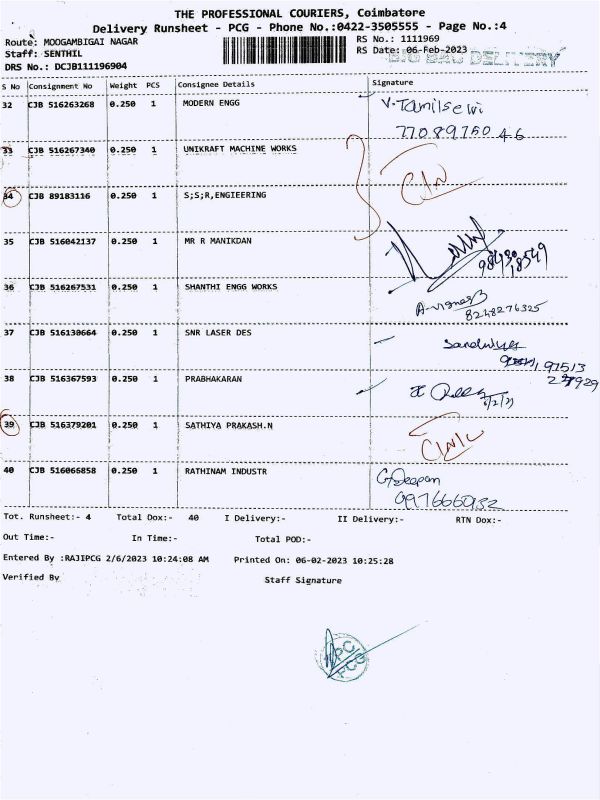 THE PROFESSIONAL COURIERS, Coimbatore
Delivery Runsheet - PCG - Phone No.:0422-3505555 - Page No.:4
Route: MOOGAMBIGAI NAGAR RS No.: 1111969
Staff: SENTHIL RS Date: 06-Feb-2023
BIG BAG DELIVERY
DRS No.: DCJB111196904
S No Consignment No Weight PCS Consignee Details Signature
32 CJB 516263268 0.250 1 MODERN ENGG V.Tamilselvi
33 CJB 516267340 0.250 1 UNIKRAFT MACHINE WORKS
34 CJB 89183116 0.250 1 S;S;R,ENGIEERING
35 CJB 516042137 0.250 1 MR R MANIKDAN
36 CJB 516267531 0.250 1 SHANTHI ENGG WORKS
8248276325
37 CJB 516130664 0.250 1 SNR LASER DES
38 CJB 516367593 0.250 1 PRABHAKARAN
39 CJB 516379201 0.250 1 SATHIYA PRAKASH.N
40 CJB 516066858 0.250 1 RATHINAM INDUSTR G.Deepan
Tot. Runsheet:- 4 Total Dox:- 40 I Delivery:- II Delivery:- RTN Dox:-
Out Time:- In Time:- Total POD:-
Entered By :RAJIPCG 2/6/2023 10:24:08 AM Printed On: 06-02-2023 10:25:28
Verified By Staff Signature